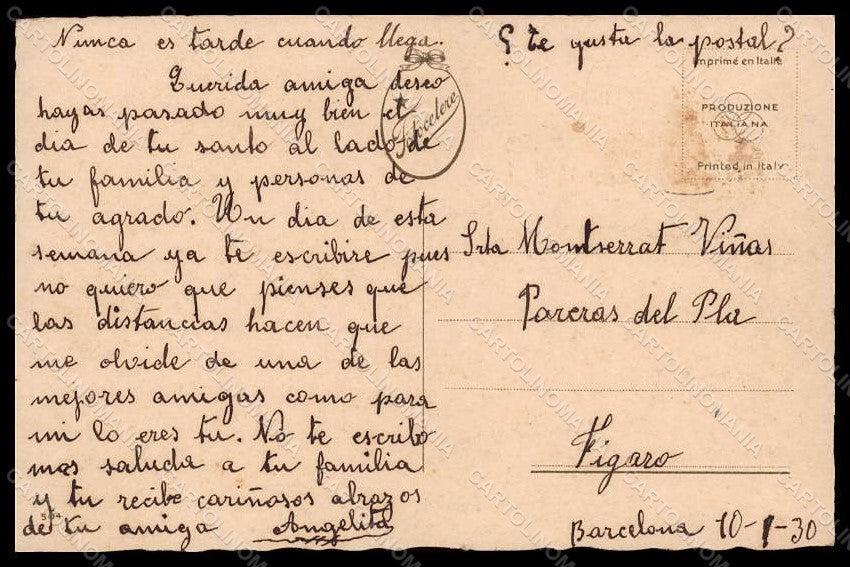 Nunca es tarde cuando llega.
Querida amiga deseo
hayas pasado muy bien el
dia de tu santo al lado de
tu familia y personas de
tu agrado. Un dia de esta
semana ya te escribire pues
no quiero que pienses que
las distancias hacen que
me olvide de una de las
mejores amigas como para
mi lo eres tu. No te escribo
mas saluda a tu familia
y tu recibe cariñosos abrazos
de tu amiga Angelita
Fotocelere
¿Te gusta la postal?
Imprimé en Italie
PRODUZIONE
ITALIANA
Printed in Italy
Srta Montserrat Viñas
Pareras del Pla
Figaro
Barcelona 10-1-30
CARTOLINOMANIA